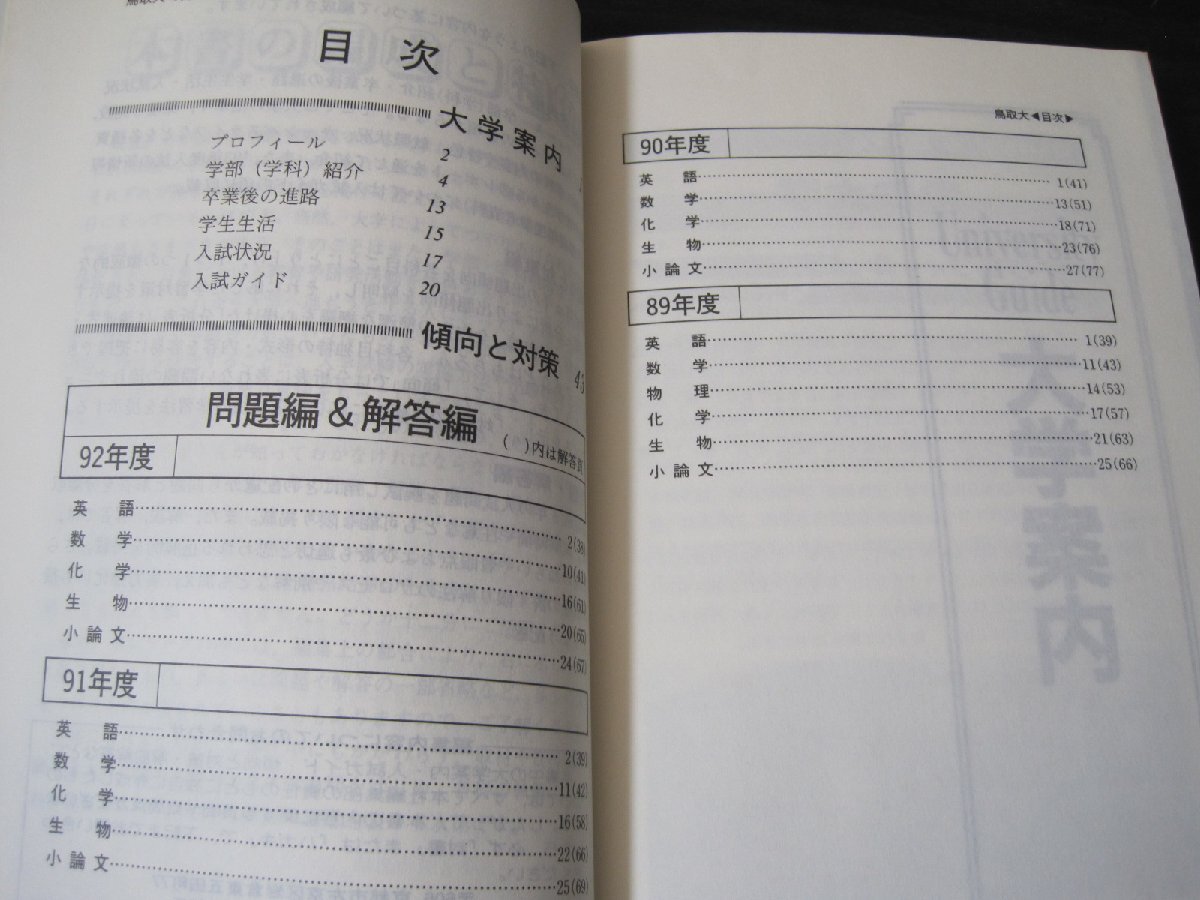 目次
大学案内
プロフィール 2
学部(学科)紹介 4
卒業後の進路 13
学生生活 15
入試状況 17
入試ガイド 20
傾向と対策 43
問題編&解答編
( )内は解答頁
92年度
英語 2(38)
数学 10(41)
化学 16(61)
生物 20(65)
小論文 24(67)
91年度
英語 2(39)
数学 11(42)
化学 16(58)
生物 22(66)
小論文 25(69)
鳥取大◀目次▶
90年度
英語 1(41)
数学 13(51)
化学 18(71)
生物 23(76)
小論文 27(77)
89年度
英語 1(39)
数学 11(43)
物理 14(53)
化学 17(57)
生物 21(63)
小論文 25(66)